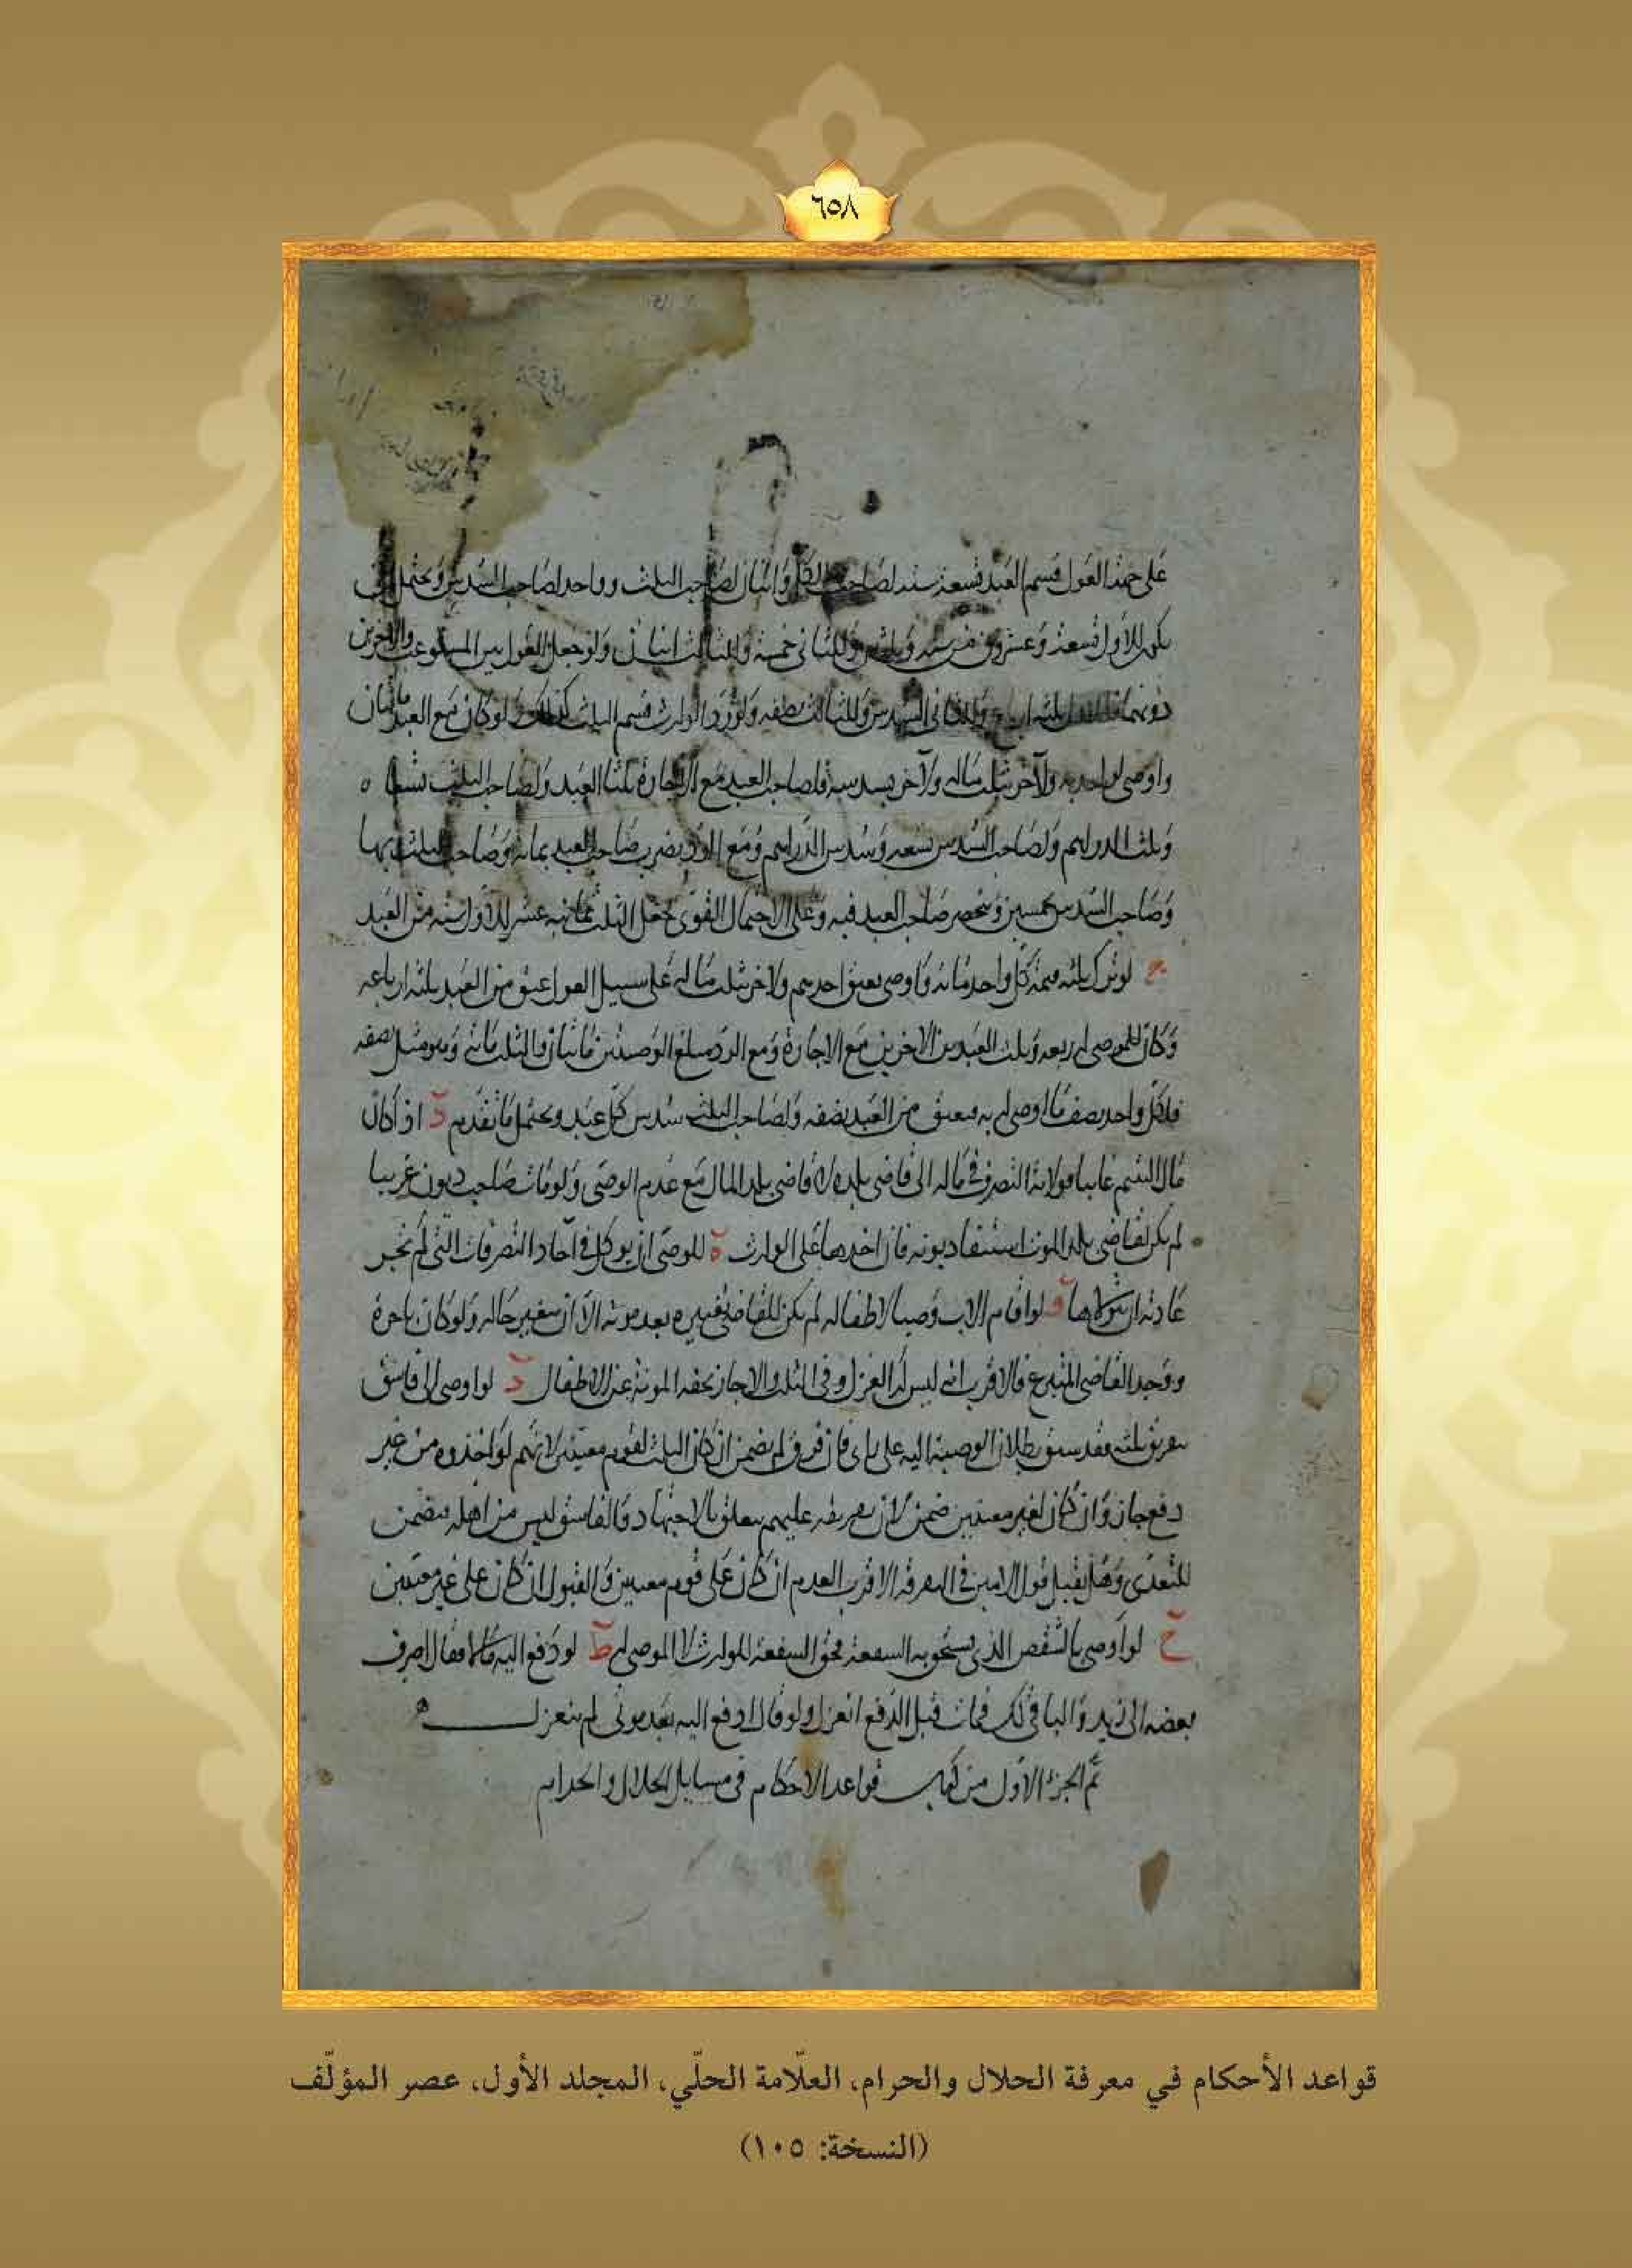 ٦٥٨
على هذا القول قسم العبد تسعة ستة لصاحب الكل واثنان لصاحب الثلث وواحد لصاحب السدس ويحتمل ان
يكون للأول تسعة وعشرون من ستة وثلثين وللثاني خمسة وللثالث اثنان ولو جعل القول بين
وللثاني السدس وللثالث نصفه ولو رد الوارث قسم الثلث كذلك لو كان مع العبد مائتان
واوصى لواحد به ولآخر بثلث ماله ولآخر بسدسه فلصاحب العبد مع الاجازة ثلثا العبد ولصاحب الثلث تسعاه
وثلث الدراهم ولصاحب السدس تسعه وسدس الدراهم ومع الرد يضرب صاحب العبد بمائة وصاحب الثلث بها
وصاحب السدس بخمسين وينحصر صاحب العبد فيه وعلى الاحتمال القوى يجعل الثلث ثمانية عشر للأول ستة من العبد
ج لو ترك ثلثه قيمة كل واحد مائة واوصى بعتق احدهم ولاخر بثلث ماله على سبيل العول عتق من العبد ثلثه ارباعه
وكان للموصى له ربعه وثلث العبدين الاخرين مع الاجازة ومع الرد مبلغ الوصيتين مائتان والثلث مائة وهو مثل نصفه
فلكل واحد نصف ما اوصى له به فيعتق من العبد نصفه ولصاحب الثلث سدس كل عبد ويحتمل ما تقدم د اذا كان
مال اليتيم غايبا فولاية التصرف في ماله الى قاضي بلده لا قاضي بلد المال مع عدم الوصى ولو مات صاحب ديون غريبا
لم يكن لقاضي بلد الموت استيفا ديونه فان اخذها على الوارث ه للوصى ان يوكل في آحاد التصرفات التي لم تجر
عادته ان يتولاها و لو اقام الاب وصيا لاطفاله لم يكن للقاضي تغييره بعد موته الا ان يتغير حاله ولو كان باجرة
ووجد القاضي المتبرع فالاقرب انه ليس له العزل وفى الثلث والا جاز تخفيفا للمونة عن الاطفال ز لو اوصى الى فاسق
بتفريق ثلثه فقد سبق بطلان الوصية اليه على راى فان فرق لم يضمن ان كان الثلث لقوم معينين لانهم لو اخذوه من غير
دفع جاز وان كان لغير معينين ضمن لان تفريقه عليهم يتعلق بالاجتهاد والفاسق ليس من اهله فيضمن
للتعدى وهل يقبل قول الامين في التفرقة الاقرب العدم ان كان على قوم معينين والقبول ان كان على غير معينين
ح لو اوصى بالشقص الذي يستحق به الشفعة فحق الشفعة للوارث لا الموصى له ط لو دفع اليه مالا فقال اصرف
بعضه الى زيد والباقي لك فمات قبل الدفع انعزل ولو قال ادفع اليه بعد موتى لم ينعزل
تم الجزء الاول من كتاب قواعد الاحكام في مسايل الحلال والحرام
قواعد الأحكام في معرفة الحلال والحرام، العلّامة الحلّي، المجلد الأول، عصر المؤلّف
(النسخة: ١٠٥)